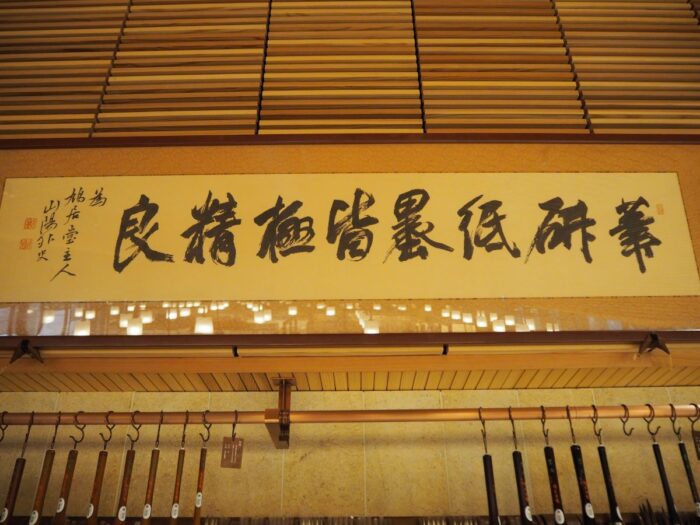 筆研紙墨皆極精良
為
鳩居堂主人
山陽外史